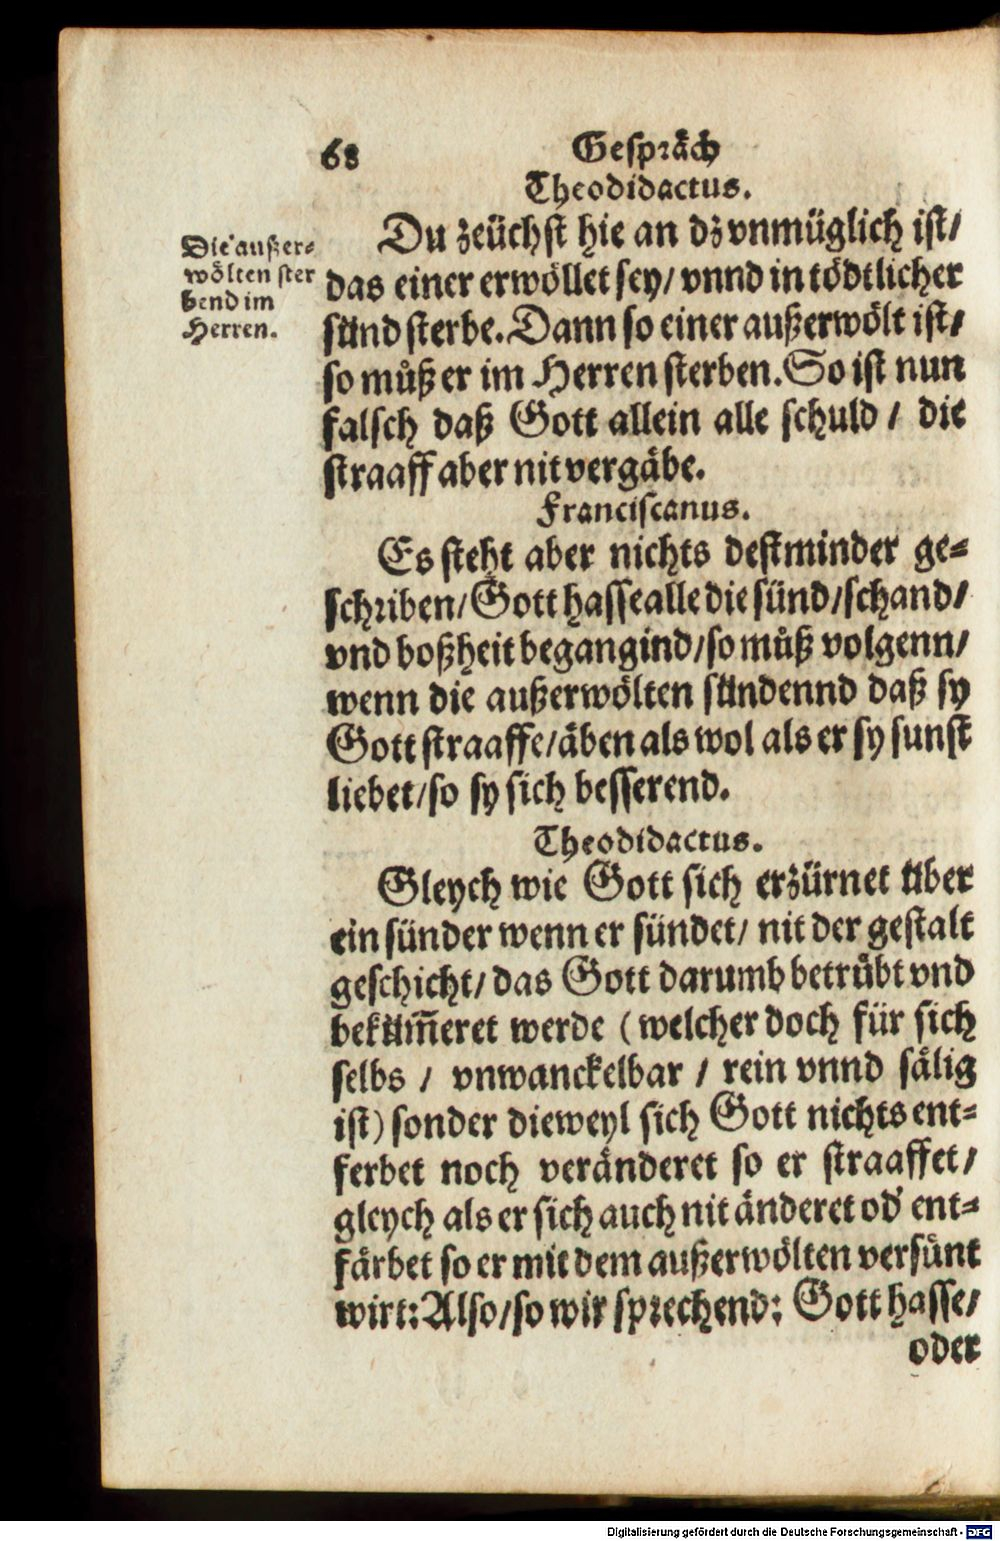 68 Gespräch
Theodidactus.
Die außer=
wölten ster
bend im
Herren.
Du zeüchst hie an dz vnmüglich ist/
das einer erwöllet sey/ vnnd in tödtlicher
sünd sterbe. Dann so einer außerwölt ist/
so můß er im Herren sterben. So ist nun
falsch daß Gott allein alle schuld / die
straaff aber nit vergäbe.
Franciscanus.
Es steht aber nichts destminder ge=
schriben/ Gott hasse alle die sünd/ schand/
vnd boßheit begangind/ so můß volgenn/
wenn die außerwölten sündennd daß sy
Gott straaffe/ äben als wol als er sy sunst
liebet/ so sy sich besserend.
Theodidactus.
Gleych wie Gott sich erzürnet über
ein sünder wenn er sündet/ nit der gestalt
geschicht/ das Gott darumb betrübt vnd
bekům̄eret werde (welcher doch für sich
selbs / vnwanckelbar / rein vnnd sälig
ist) sonder dieweyl sich Gott nichts ent=
ferbet noch veränderet so er straaffet/
gleych als er sich auch nit änderet od' ent=
färbet so er mit dem außerwölten versünt
wirt: Also/ so wir sprechend: Gott hasse/
oder
Digitalisierung gefördert durch die Deutsche Forschungsgemeinschaft - DFG